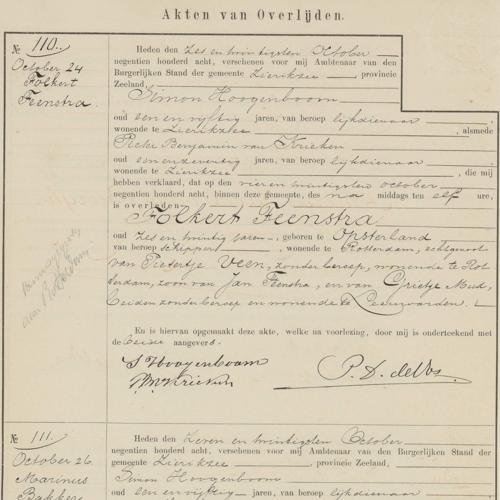 Akten van Overlijden.
№ 110.
October 24
Folkert
Feenstra.
Heden den zes en twintigsten October
negentien honderd acht, verschenen voor mij Ambtenaar van den
Burgerlijken Stand der gemeente Zierikzee, provincie
Zeeland,
Simon Hoogenboom
oud een en vijftig jaren, van beroep lijkdienaar
wonende te Zierikzee, alsmede
Pieter Benjamin van Krieken
oud een en zeventig jaren, van beroep lijkdienaar
wonende te Zierikzee, die mij
hebben verklaard, dat op den vier en twintigsten october
negentien honderd acht, binnen deze gemeente, des na middags ten elf ure,
is overleden
Folkert Feenstra
oud zes en twintig jaren, geboren te Opsterland
van beroep schipper, wonende te Rotterdam, echtgenoot
van Pietertje Veen, zonder beroep, wonende te Rot
terdam, zoon van Jan Feenstra, en van Grietje Mud,
beiden zonder beroep en wonende te Leeuwarden.
En is hiervan opgemaakt deze akte, welke na voorlezing, door mij is onderteekend met
de beide aangevers.
S Hoogenboom
v Krieken
P. D. de Vos
№ 111.
October 26.
Marinus
Bakker
Heden den zeven en twintigsten October
negentien honderd acht, verschenen voor mij Ambtenaar van den Burgerlijken Stand der
gemeente Zierikzee, provincie Zeeland,
Simon Hoogenboom
oud een en vijftig jaren, van beroep lijkdienaar